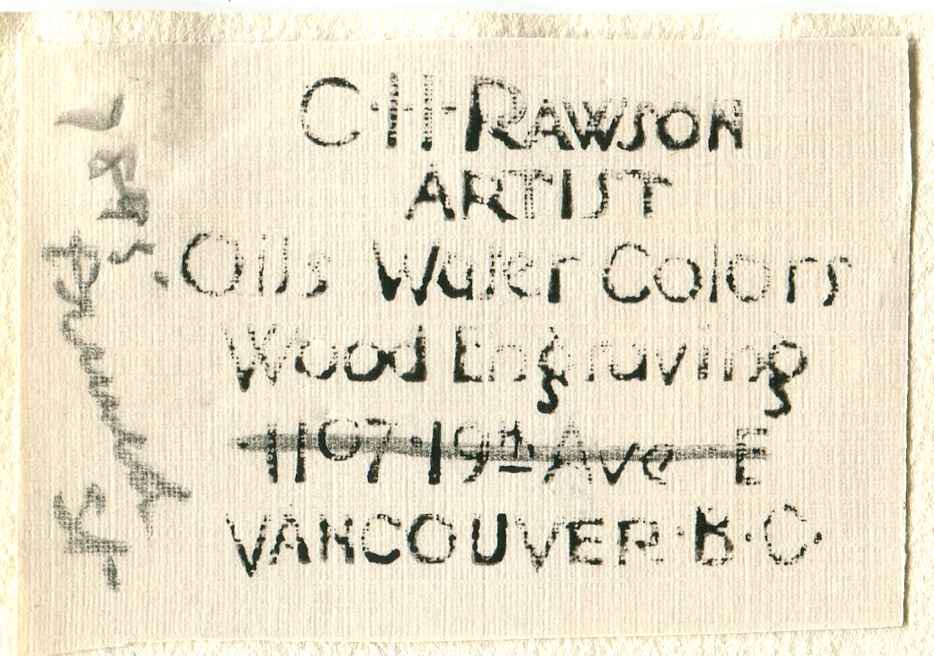 C·H·RAWSON
ARTIST
Oils Water Colors
Wood Engraving
1107·19th Ave E
VANCOUVER·B·C·